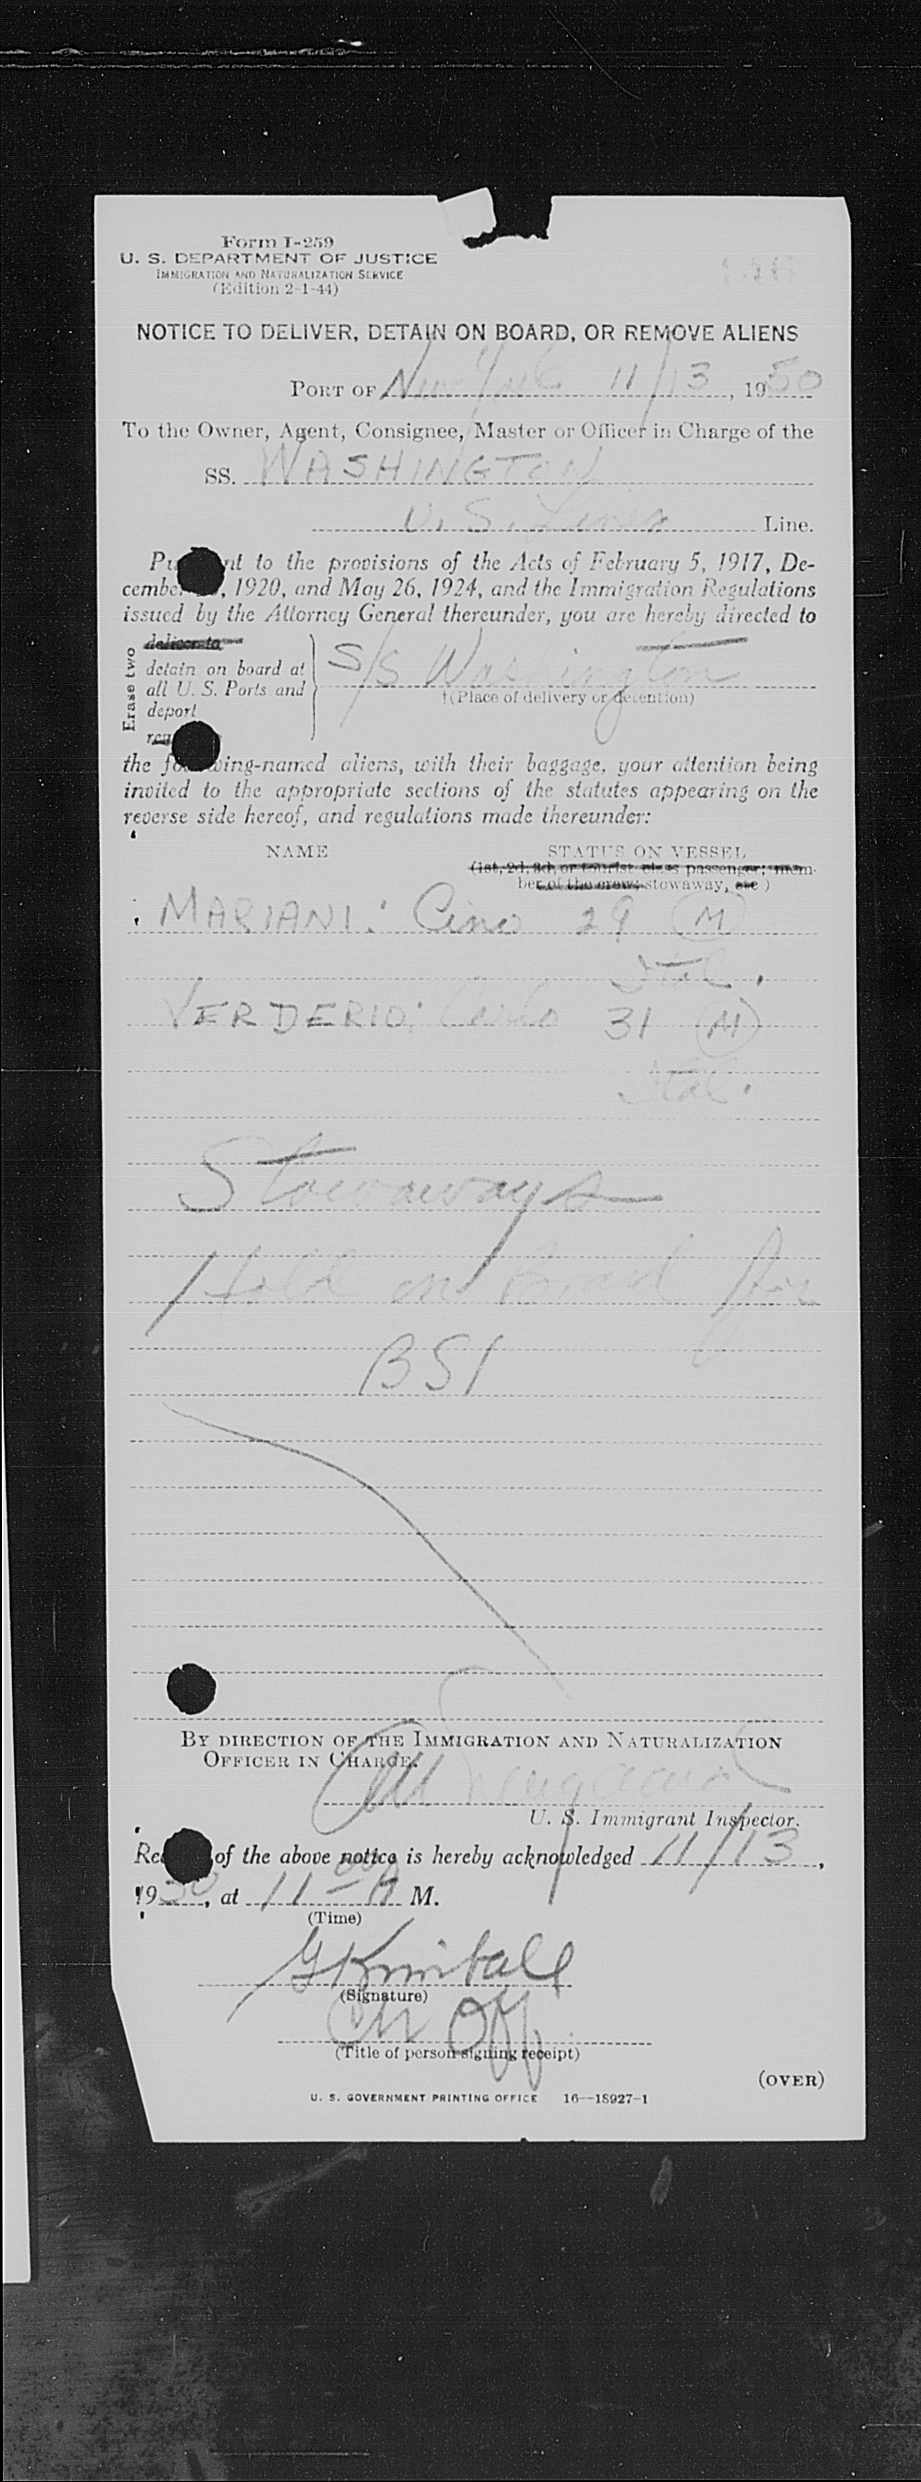 Form I-259
U. S. DEPARTMENT OF JUSTICE
IMMIGRATION AND NATURALIZATION SERVICE
(Edition 2-1-44)
NOTICE TO DELIVER, DETAIN ON BOARD, OR REMOVE ALIENS
PORT OF New York 11/13, 1950
To the Owner, Agent, Consignee, Master or Officer in Charge of the
SS. WASHINGTON
U. S. Lines Line.
Pu nt to the provisions of the Acts of February 5, 1917, De-
cembe , 1920, and May 26, 1924, and the Immigration Regulations
issued by the Attorney General thereunder, you are hereby directed to
Erase two
deliver to
detain on board at
all U. S. Ports and
deport
S/S Washington
†(Place of delivery or detention)
the fo wing-named aliens, with their baggage, your attention being
invited to the appropriate sections of the statutes appearing on the
reverse side hereof, and regulations made thereunder:
NAME STATUS ON VESSEL
(1st, 2d, 3d, or tourist class passenger; mem-
ber of the crew; stowaway, etc)
MARIANI: Cino 29 (M)
Ital.
VERDERIO: Carlo 31 (M)
Ital.
Stowaways
Hold on Board for
BSI
BY DIRECTION OF THE IMMIGRATION AND NATURALIZATION
OFFICER IN CHARGE.
U. S. Immigrant Inspector.
Re of the above notice is hereby acknowledged 11/13,
1950, at 11 00 A M.
(Time)
G Kimball
(Signature)
Ch Off.
(Title of person signing receipt)
(OVER)
U. S. GOVERNMENT PRINTING OFFICE 16—18927-1